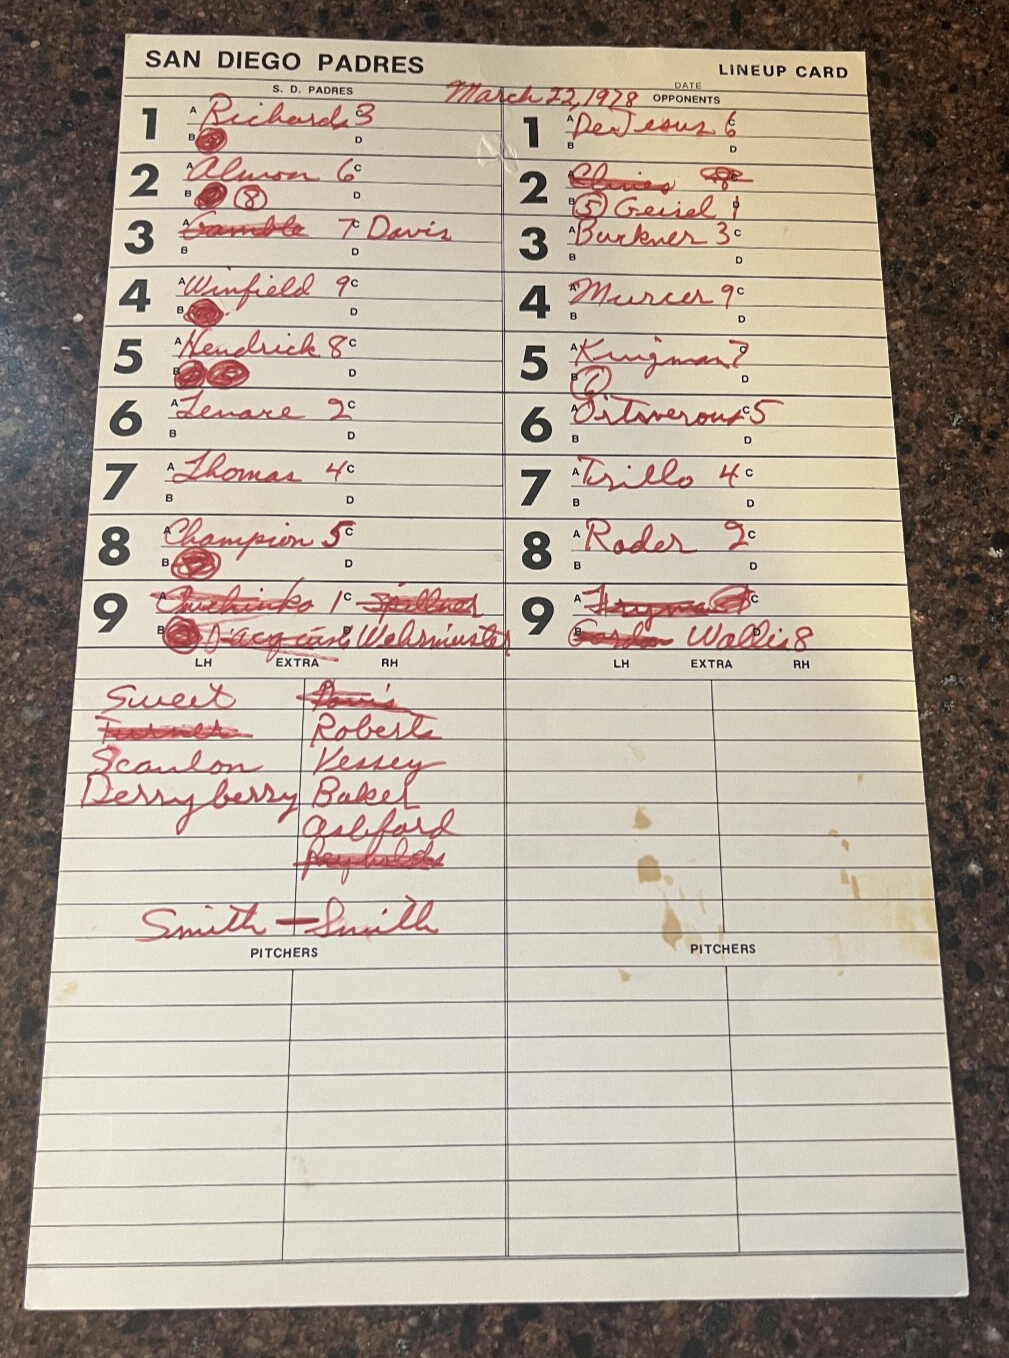 SAN DIEGO PADRES
LINEUP CARD
S. D. PADRES
March 22, 1978
DATE
OPPONENTS
1 A Richards 3 C
B D
2 A Almon 6 C
B 8 D
3 A Gamble 7 C Davis
B D
4 A Winfield 9 C
B D
5 A Hendrick 8 C
B D
6 A Tenace 2 C
B D
7 A Thomas 4 C
B D
8 A Champion 5 C
B D
9 A Owchinko 1 C Spillner
B D'Acquisto Wehrmeister
LH EXTRA RH
Sweet Davis
Turner Roberts
Scanlon Vessey
Derryberry Baker
Ashford
Reynolds
Smith — Smith
PITCHERS
1 A DeJesus 6 C
B D
2 A Clines 8 C
B 5 Geisel 1 D
3 A Buckner 3 C
B D
4 A Murcer 9 C
B D
5 A Kingman 7 C
B D
6 A Ontiveros 5 C
B D
7 A Trillo 4 C
B D
8 A Rader 2 C
B D
9 A C
B Gordon Wallis 8 D
LH EXTRA RH
PITCHERS